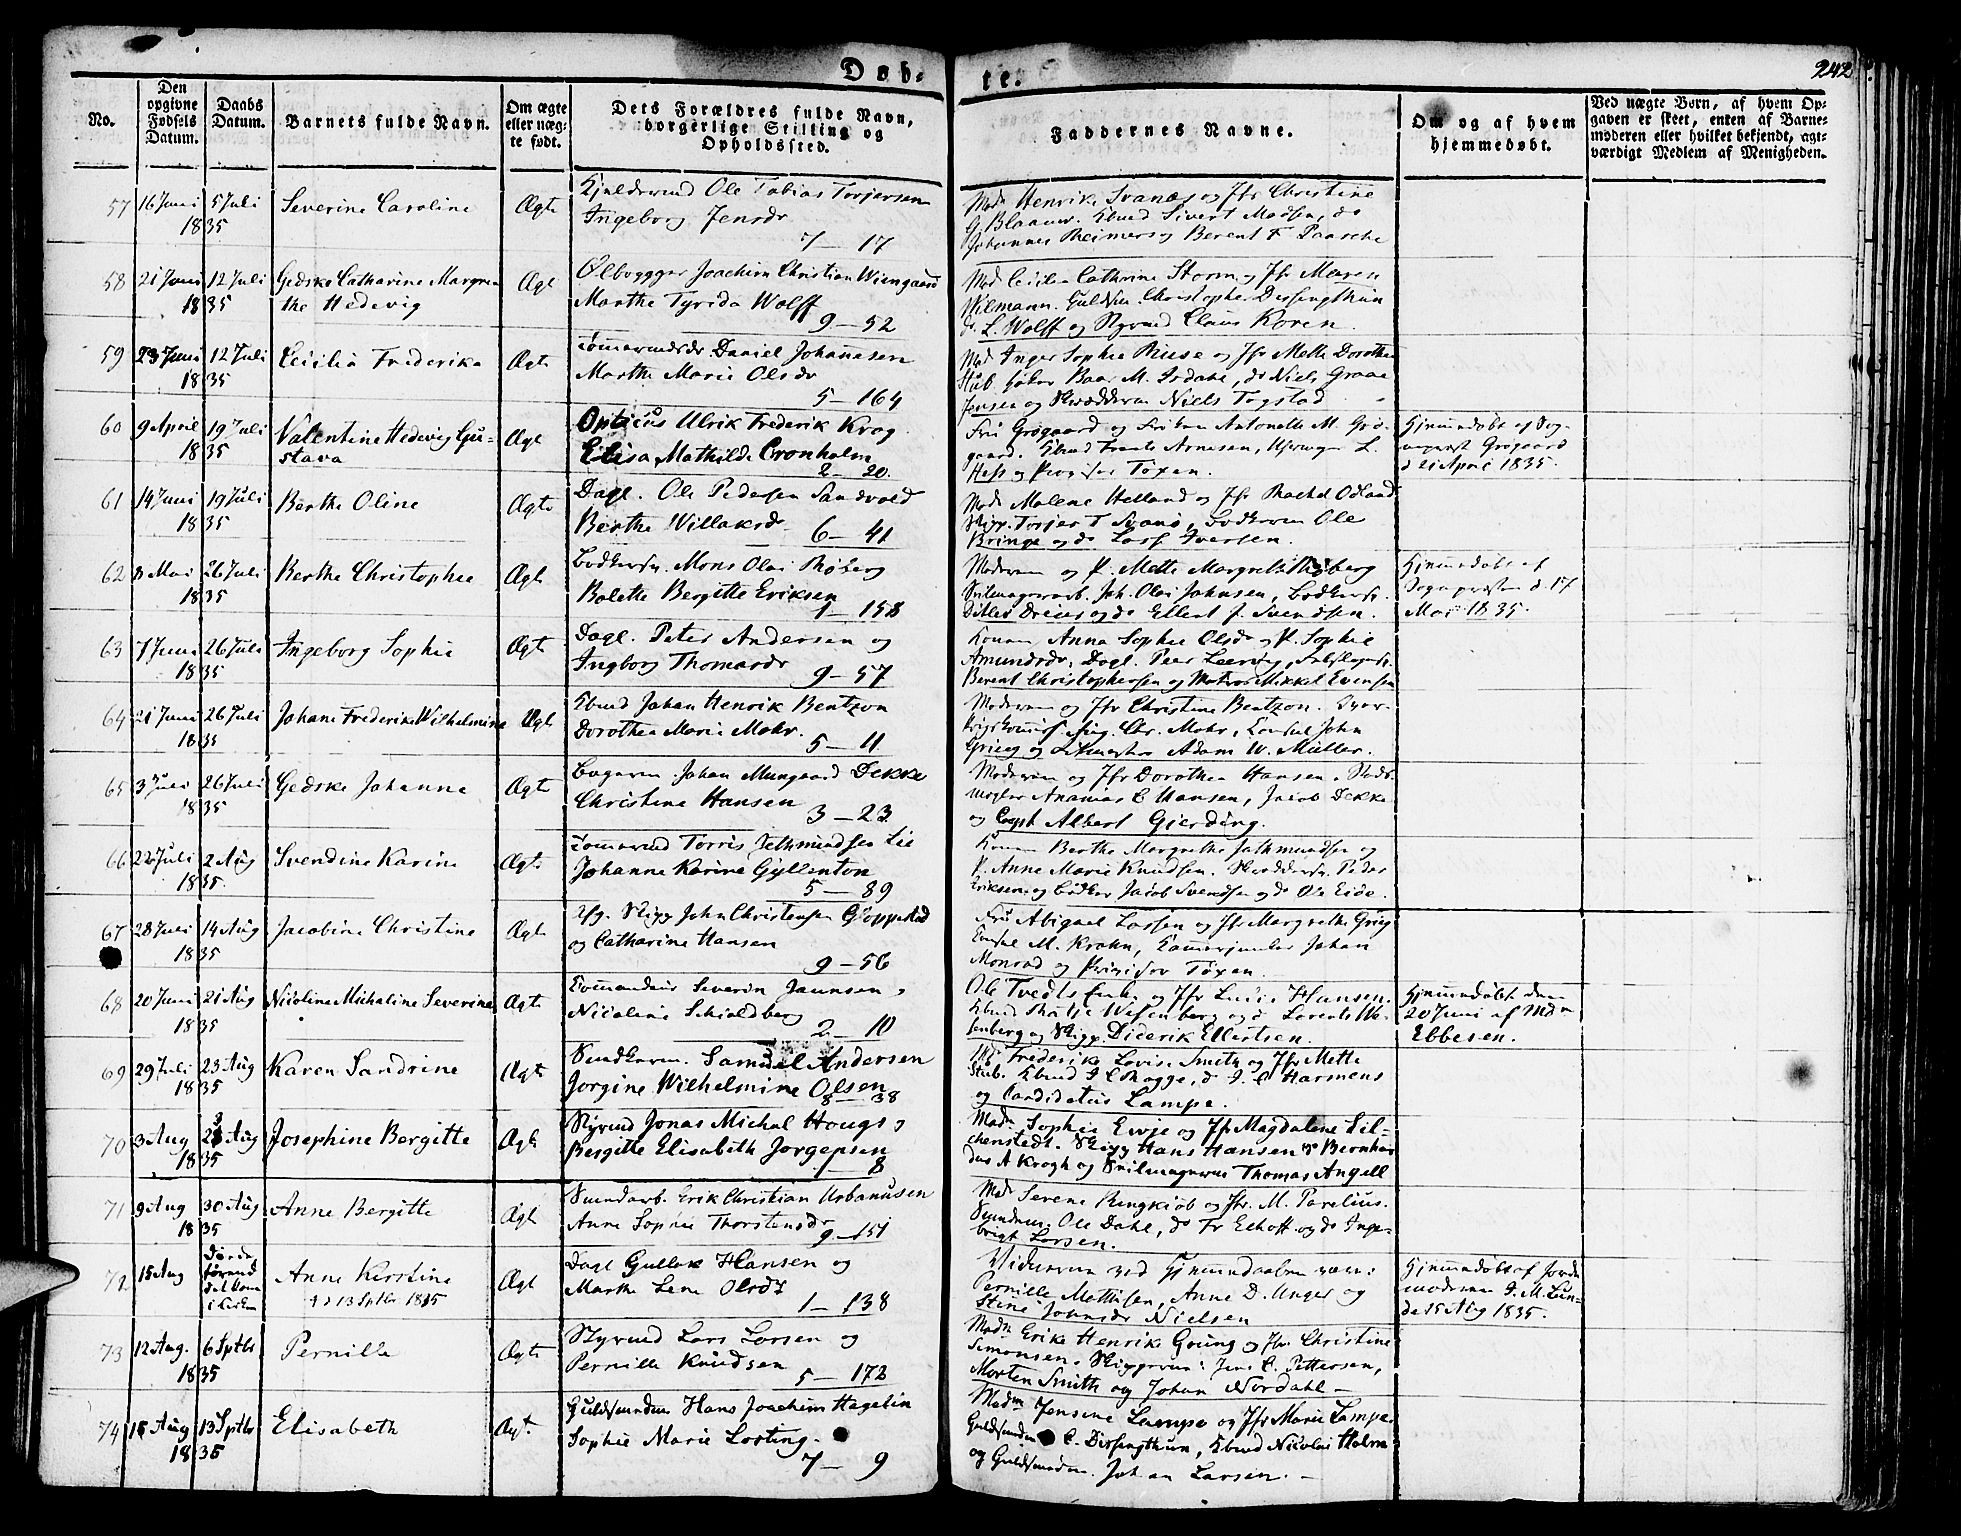 Døb-
te.
242
No.
Den
opgivne
Fødsels
Datum.
Daabs
Datum.
Barnets fulde Navn.
Om ægte
eller uæg-
te født.
Dets Forældres fulde Navn,
borgerlige Stilling og
Opholdssted.
Faddernes Navne.
Om og af hvem
hjemmedøbt.
Ved uægte Børn, af hvem Op-
gaven er skeet, enten af Barne-
moderen eller hvilket bekjendt, agt-
værdigt Medlem af Menigheden.
57 16 Juni 5 Juli Severine Caroline Ægte Ole Tobias Torjersen
1835 Ingeborg Jensdr
7 — 17
Madm Henrike Svanæs og Jfr Christine
G. Blaauw. Sivert Madsen, do
Johannes Reimers og Berent F Paasche
58 21 Juni 12 Juli Gedske Catharine Margre- Ægt Joachim Christian Wiengaard
1835 the Hedevig Marthe Tyrida Wolff
9 — 52
Mad Cecilia Cathrine Storm og Jfr Maren
Wilmann. Christopher Dissingthun
do L. Wolff og Styrmd Claus Koren.
59 23 Juni 12 Juli Cecilia Frederika Ægt Daniel Johannesen
1835 Marthe Marie Olsdr
5 — 164
Mad Inger Sophie Riise og Jfr Mette Dorothea
Stub. Baar M. Irdahl, do Niels Graae
Jensen og Niels Togstad
60 9 April 19 Juli Valentine Hedevig Gu- Ægt Opticus Ulrik Frederik Krog
1835 stava Elisa Mathilde Cronholm
2 — 20.
Fru Grøgaard og Antonette M. Grø-
gaard. Arnesen, L.
Hess og Provisor Toxen.
Hjemmedøbt af Sog-
nepræst Grøgaard
d 21 April 1835.
61 14 Juni 19 Juli Berthe Oline Ægte Dagl. Ole Pedersen Sandvold
1835 Berthe Willaksdr
6 — 41
Mad Malene Helland og Jfr Rachel Odland
Torjer T Svanø, Ole
Bringe og do Lass Iversen.
62 8 Mai 26 Juli Berthe Christophie Ægt Mons Olai Roberg
1835 Bolette Bergitte Eriksen
1 — 158
Moderen og P. Mette Margrethe Roberg
Joh. Olai Johnsen,
Ditlev Dreier og do Ellert J. Svendsen.
Hjemmedøbt af
Sognepresten d. 17
Mai 1835.
63 7 Juni 26 Juli Ingeborg Sophie Ægt Dagl. Peter Andersen og
1835 Ingborg Thomasdr
9 — 57
Konen Anna Sophie Olsdr og P. Sophie
Amundsdr, Dagl. Peer
Berent Christophersen og Matros Mikkel Evensen
64 21 Juni 26 Juli Johane Frederike Wilhelmine Ægt Johan Henrik Bentzon
1835 Dorothea Marie Mohr.
5 — 11
Moderen og Jfr Christine Bentzon.
Chr. Mohr, Consul John
Grieg og Adam W. Müller.
65 3 Juli 26 Juli Gedske Johanne Ægt Johan Mungaard Dekke
1835 Christine Hansen
3 — 23
Moderen og Jfr Dorothea Hansen.
Ananias C Hansen, Jacob Dekke
og Capt Albert Gjerding.
66 22 Juli 2 Aug Svendine Karine Ægt Torris Sethmundsen Lie
1835. Johanne Karine Gyllenton
5 — 89
Konen Berthe Margrethe Sathmundsen og
P. Anne Marie Knudsen. Peder
Eriksen og Bødker Jacob Svendsen og do Ole Eide.
67 28 Juli 14 Aug Jacobine Christine Ægt John Christensen Gjøppestad
1835 og Catharine Hansen
9 — 56
Fru Abigael Lassen og Jfr Margrethe Grieg
Consul M. Krohn, Kammerjunker Johan
Monrad og Provisor Toxen.
68 20 Juni 21 Aug Nicoline Michaline Severine Ægt Severin Jaunsen,
1835 Nicoline Schjoldberg
2 — 10
Ole Tvedts Enke og Jfr Hansen.
Wesenberg og do Lorents We-
senberg og Skipp Diderik Ellertsen.
Hjemmedøbt den
20 Juni af Mdm
Ebbesen.
69 29 Juli 23 Aug Karen Sandrine Ægt Samuel Andersen
1835 Jorgine Wilhelmine Olsen
8 — 38
Frederike Lovise Smith og Jfr Mette
Stub. J C Krogge, do J. C Harmens
og Candidatus Lampe.
70 3 Aug 23 Aug Josephine Bergitte Ægt Styrmd Jonas Michal Hougs,
1835 Bergitte Elisabeth Jørgensen
8
Madm Sophie Evje og Jfr Magdalene Lil-
chenstedt. Skipp Hans Hansen, do Bernhar-
dus A Krogh og Thomas Angell
71 9 Aug 30 Aug Anne Bergitte Ægt Erik Christian Urbanusen
1835 Anne Sophie Thorstensdr
9 — 151
Mad Serene Ringkiøb og Jfr. M. Parelius.
Ole Dahl, do Fr Elhoff og do Inge-
brigt Larsen.
72 15 Aug Anne Kirstine Ægt Dagl Gullak Hansen og
† d 13 Septbr 1835 Marthe Lene Olsdr
1 — 138
Vidnerne ved Hjemmedaaben vare:
Pernille Mathisen, Anne D. Unger og
Stine Johnsdr Nielsen
Hjemmedøbt af Jorde-
moderen J. M. Lun-
de 15 Aug 1835.
73 12 Aug. 6 Septbr Pernille Ægt Styrmd Lars Larsen og
1835 Pernille Knudsen
5 — 172
Madm Erike Henrike Grung og Jfr Christine
Simonsen. Jens C. Pettersen,
Morten Smith og Johan Nordahl —
74 15 Aug 13 Septbr Elisabeth Ægt. Guldsmeden Hans Joachim Hagelin
1835 Sophie Marie Losting.
7 — 9
Madm Jensine Lampe og Jfr Marie Lampe.
Guldsmeden C. Dissingthun, Nicolai Holm
og Guldsmeden Johan Larsen. —